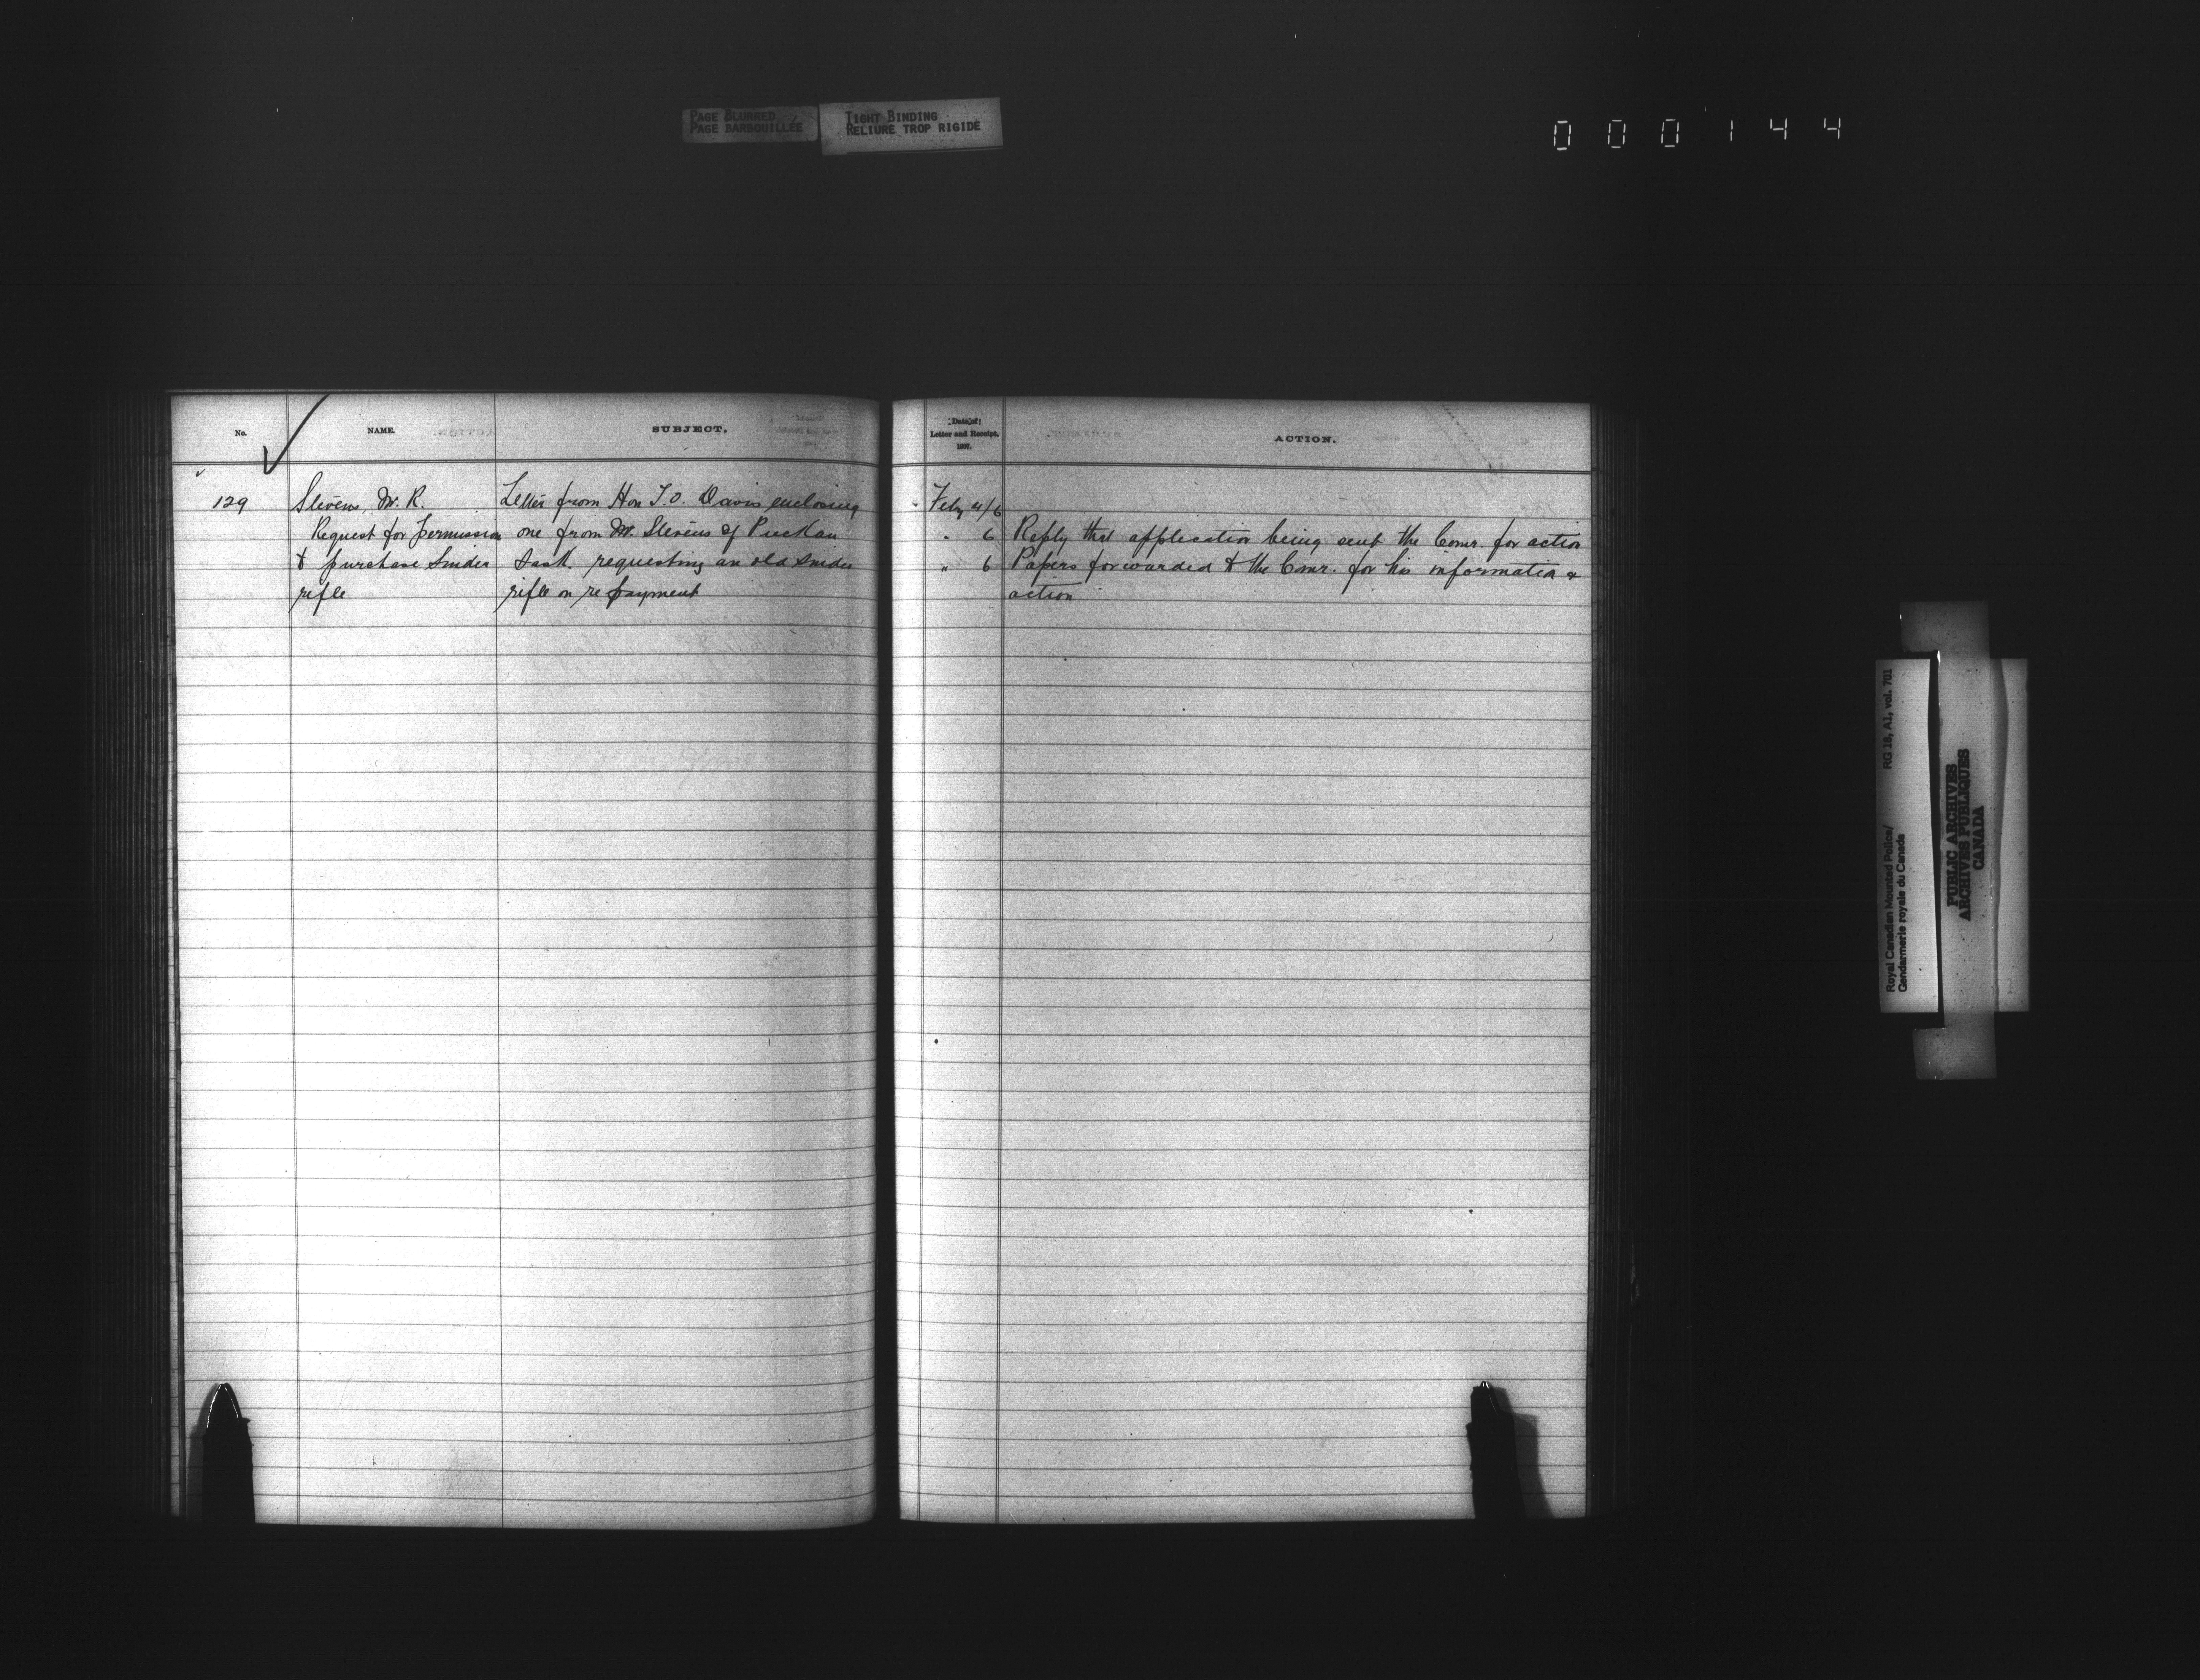 PAGE BLURRED
PAGE BARBOUILLÉE
TIGHT BINDING
RELIURE TROP RIGIDE
0 0 0 1 4 4
No.
NAME.
SUBJECT.
129
Stevens, W. R.
Request for permission
to purchase Snider
rifle
Letter from Hon T.O. Davis enclosing
one from Mr. Stevens of
Sask. requesting an old Snider
rifle on repayment
Date of
Letter and Receipt.
1907.
ACTION.
Feby 4/6
" 6 Reply that application being sent the Comr. for action
" 6 Papers forwarded to the Comr. for his information &
action
Royal Canadian Mounted Police/ RG 18, A1, vol. 701
Gendarmerie royale du Canada
PUBLIC ARCHIVES
ARCHIVES PUBLIQUES
CANADA